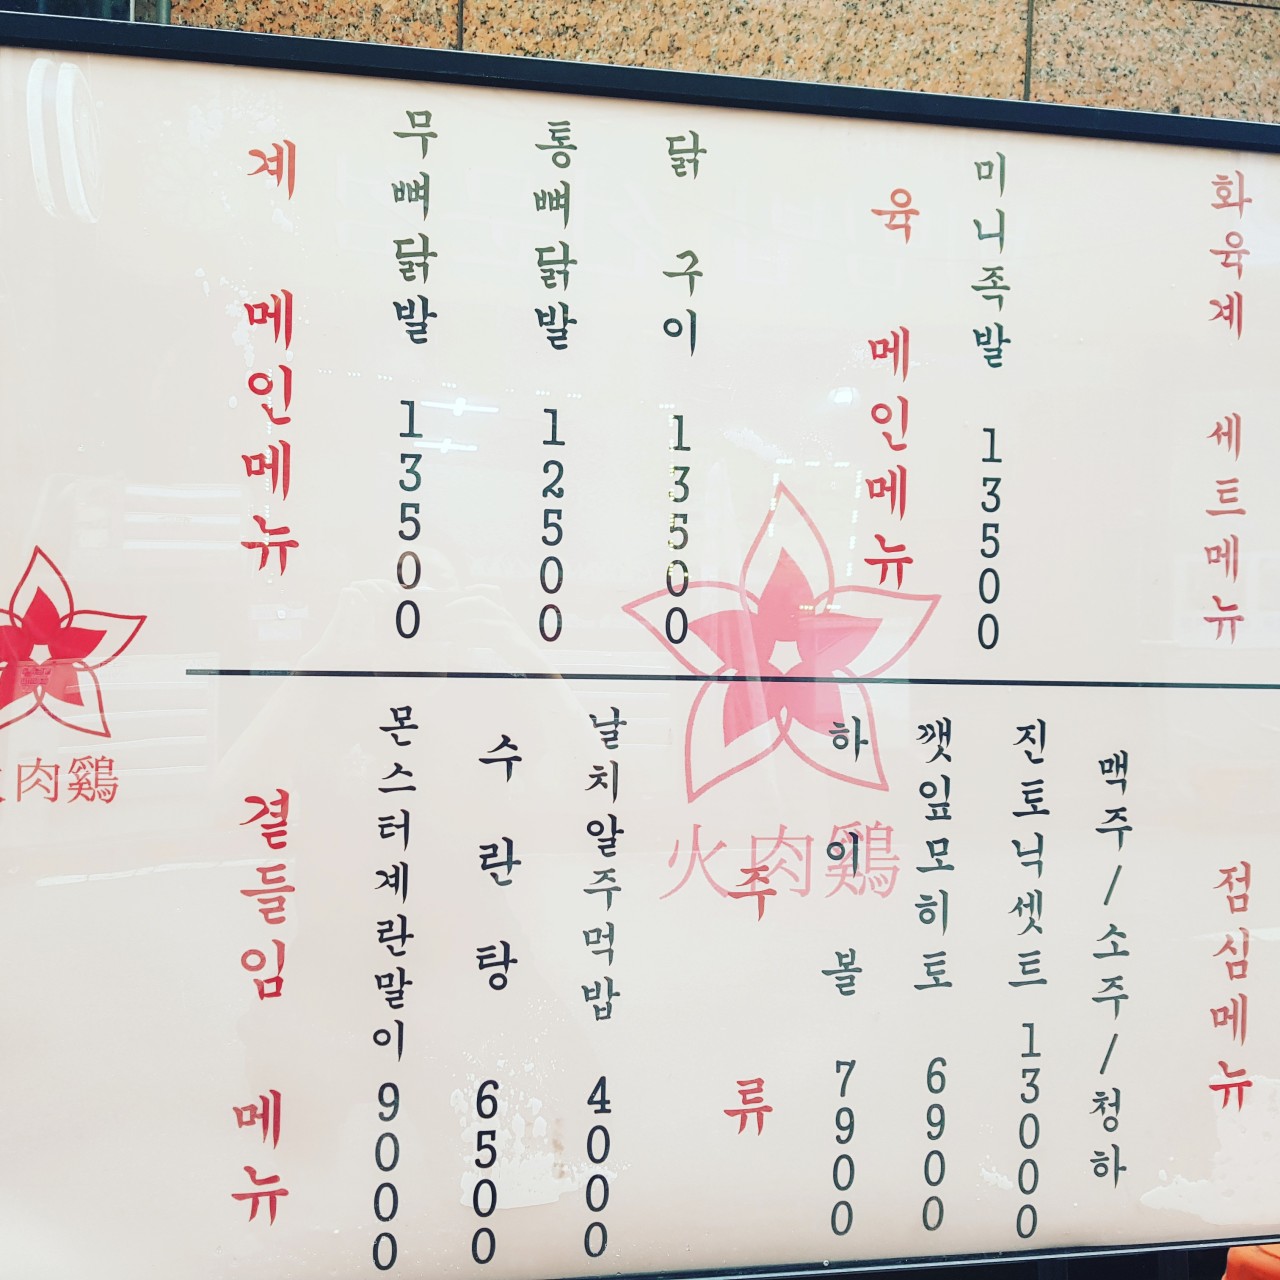 계 메인메뉴
무뼈닭발 13500
통뼈닭발 12500
닭구이 13500
육 메인메뉴
미니족발 13500
화육계 세트메뉴
곁들임 메뉴
몬스터계란말이 9000
수란탕 6500
날치알주먹밥 4000
주류
하이볼 7900
깻잎모히토 6900
진토닉셋트 13000
맥주/소주/청하
점심메뉴
肉鷄
火肉鷄